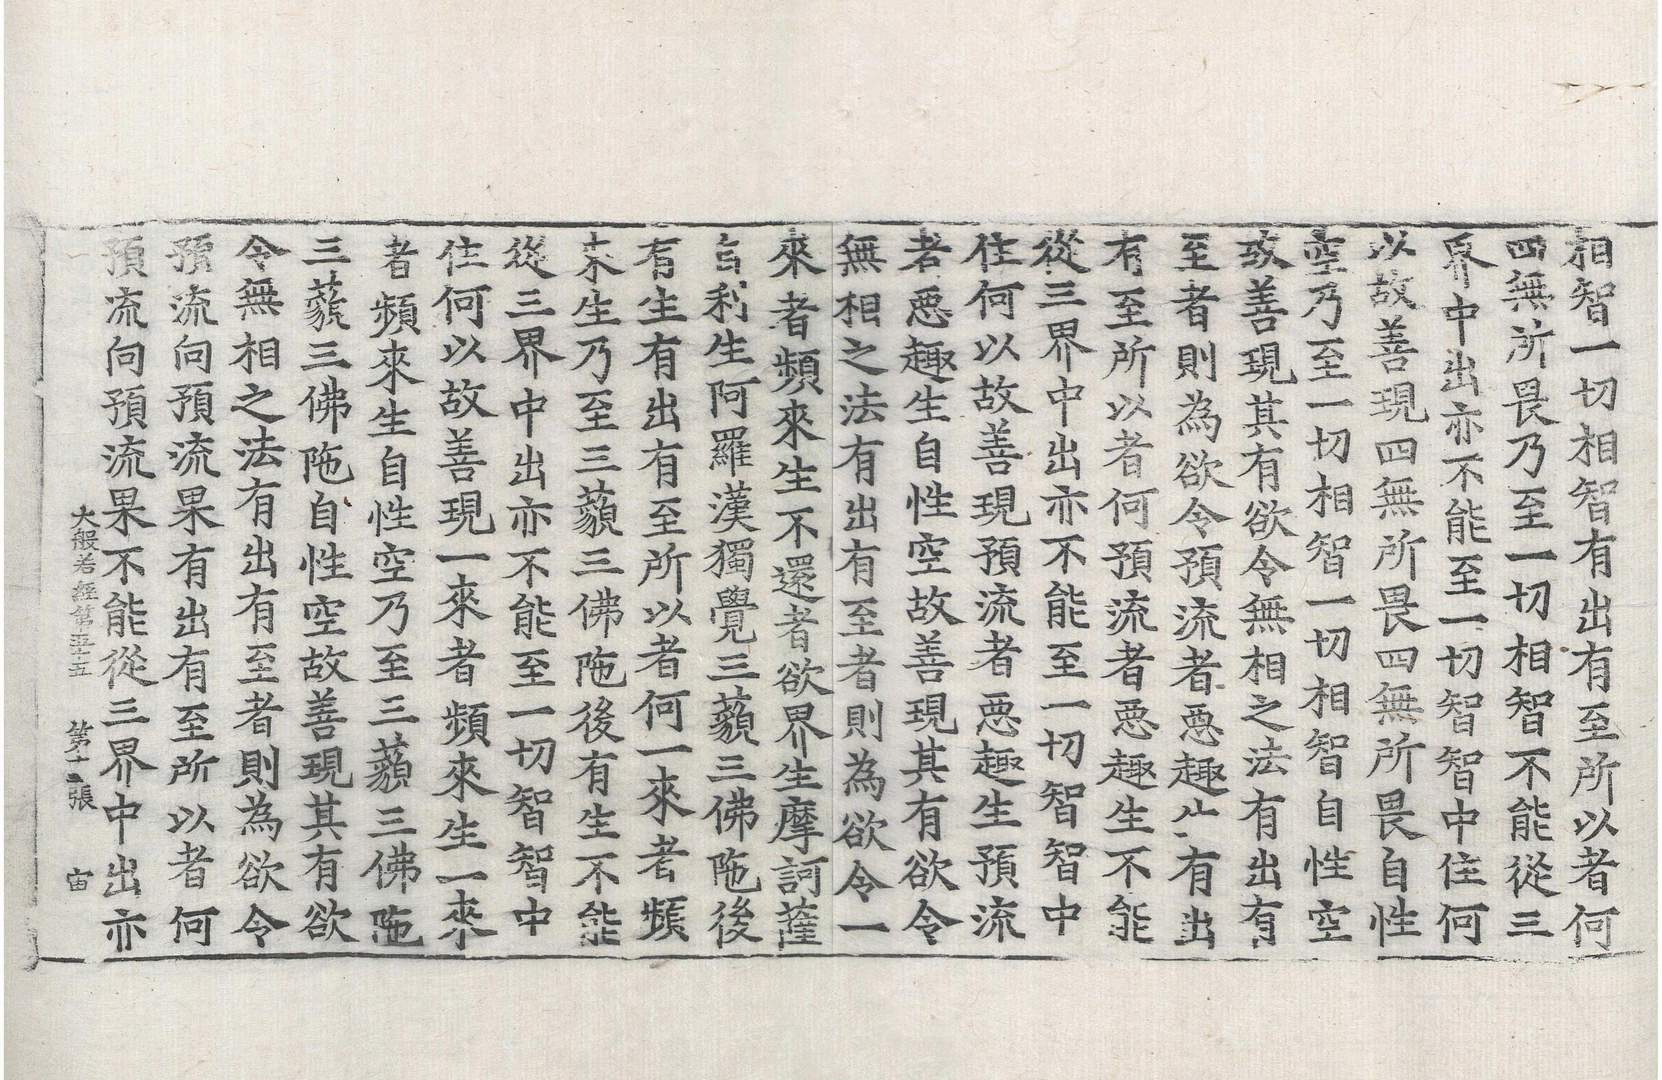 相智一切相智有出有至所以者何
四無所畏乃至一切相智不能從三
界中出亦不能至一切智智中住何
以故善現四無所畏四無所畏自性
空乃至一切相智一切相智自性空
故善現其有欲令無相之法有出有
至者則為欲令預流者悪趣生有出
有至所以者何預流者悪趣生不能
從三界中出亦不能至一切智智中
住何以故善現預流者悪趣生預流
者悪趣生自性空故善現其有欲令
無相之法有出有至者則為欲令一
來者頻來生不還者欲界生摩訶薩
自利生阿羅漢獨覺三藐三佛陁後
有生有出有至所以者何一來者頻
來生乃至三藐三佛陁後有生不能
從三界中出亦不能至一切智智中
住何以故善現一來者頻來生一來
者頻來生自性空乃至三藐三佛陁
三藐三佛陁自性空故善現其有欲
令無相之法有出有至者則為欲令
預流向預流果有出有至所以者何
預流向預流果不能從三界中出亦
大般若經第五十五 第十二張 宙